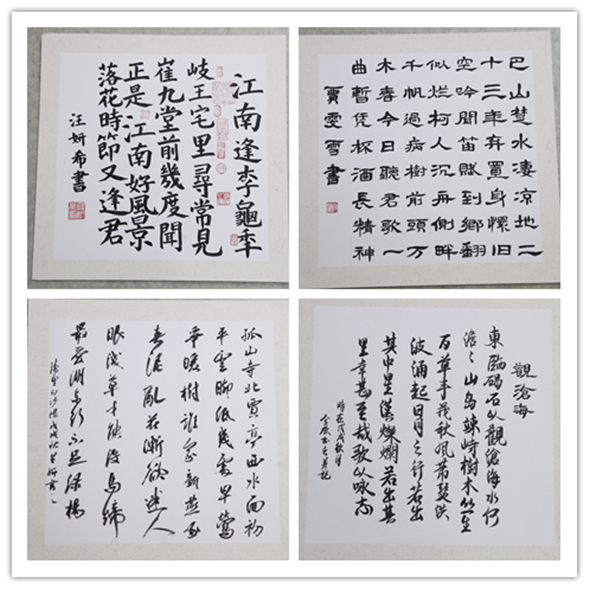 江南逢李龜年
岐王宅里尋常見
崔九堂前幾度聞
正是江南好風景
落花時節又逢君
汪妍希書
巴山楚水淒涼地二
十三年弃置身懷旧
空吟聞笛賦到鄉翻
似烂柯人沉舟側畔
千帆過病樹前頭万
木春今日聽君歌一
曲暫凭杯酒長精神
賈雯雪書
孤山寺北賈亭西水面初
平雲腳低幾處早鶯
爭暖樹誰家新燕啄
春泥亂花漸欲迷人
眼淺草才能沒馬蹄
最愛湖東行不足綠楊
陰里白沙堤戊戌秋
觀滄海
東臨碣石以觀滄海水何
澹々山島竦峙樹木丛生
百草丰茂秋風蕭瑟洪
波涌起日月之行若出
其中星漢燦爛若出其
里幸甚至哉歌以咏志
時在戊戌秋月